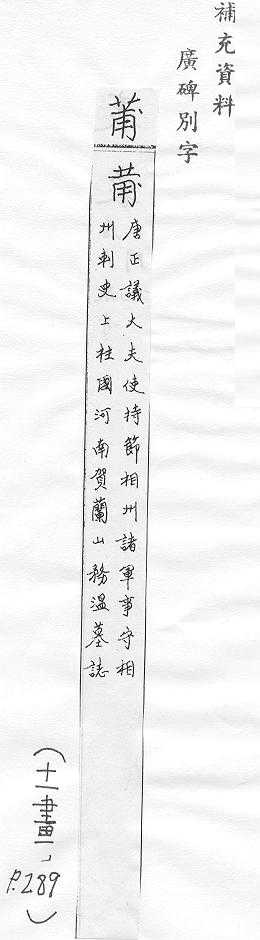 補充資料
廣碑別字
莆
唐正議大夫使持節相州諸軍事守相
州刺史上柱國河南賀蘭山務溫墓誌
(十一畫,P.289)